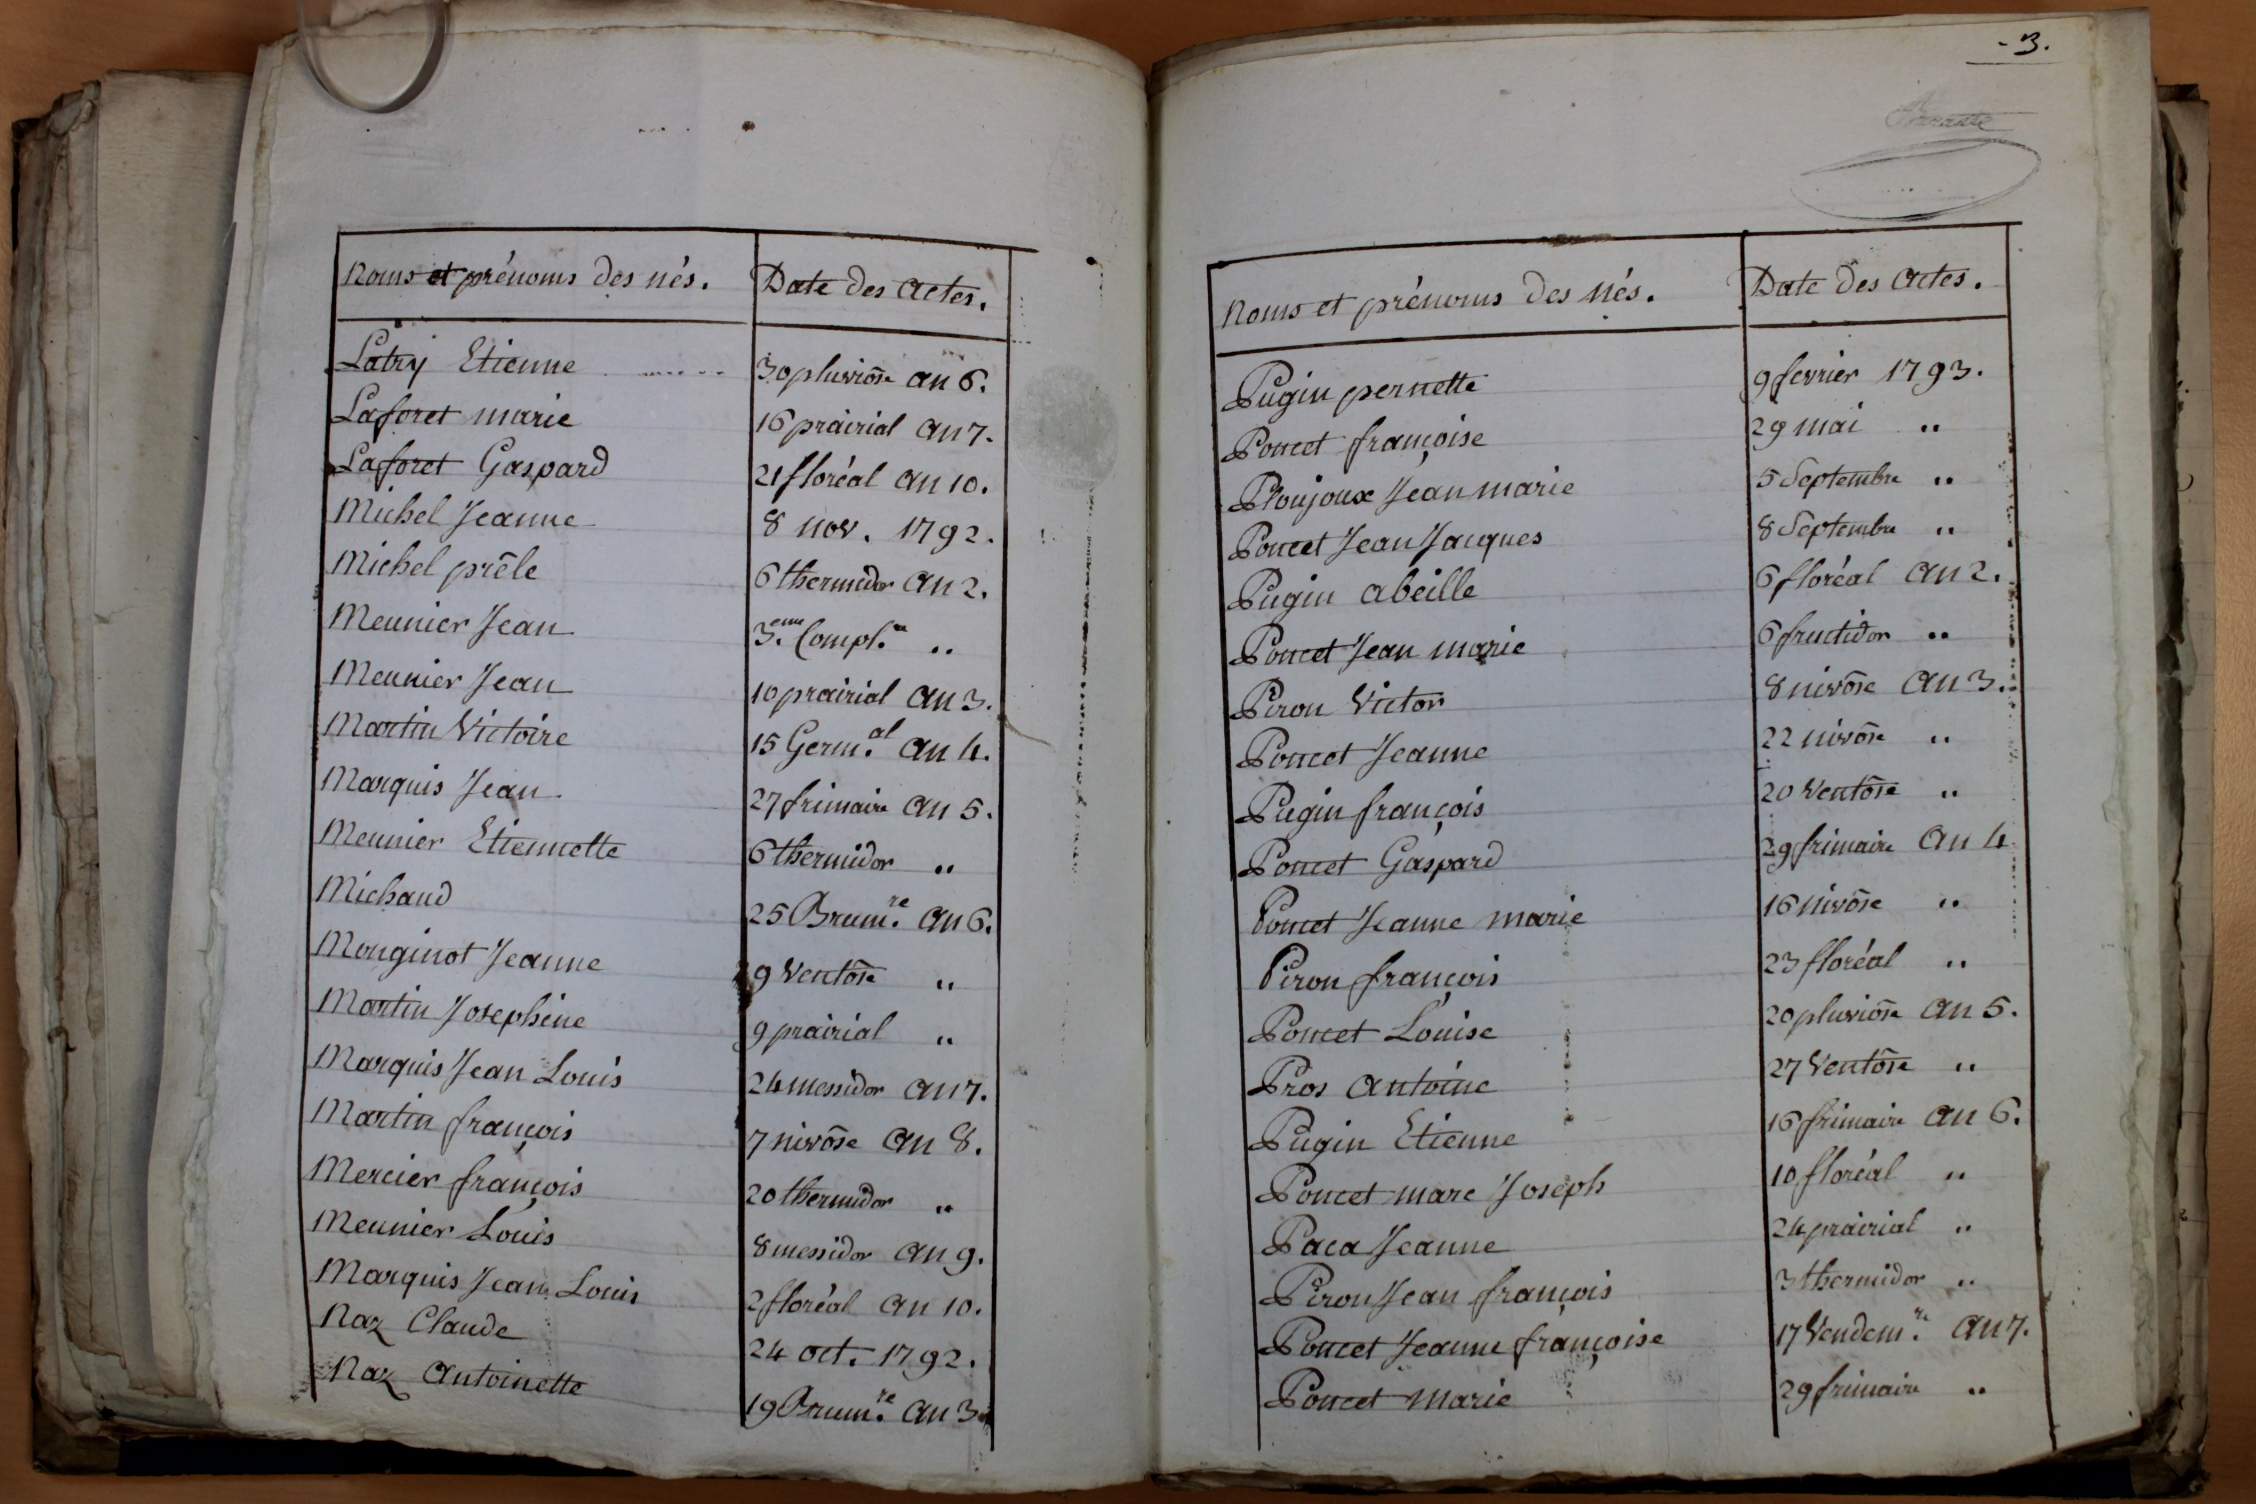 Noms et prénoms des nés. Date des actes.
Latry Etienne 30 pluviôse an 6.
Laforet marie 16 prairial an 7.
Laforet Gaspard 21 floréal an 10.
Michel Jeanne 8 nov. 1792.
Michel prêle 6 thermidor an 2.
Meunier Jean 3.eme Compl.re ..
Meunier Jean 10 prairial an 3.
Martin Victoire 15 Germ.al an 4.
Marquis Jean 27 frimaire an 5.
Meunier Etiennette 6 thermidor ..
Michaud 25 Brum.re an 6.
Monginot Jeanne 9 Ventôse ..
Martin Josephine 9 prairial ..
Marquis Jean Louis 24 messidor an 7.
Martin françois 7 nivôse an 8.
Mercier françois 20 thermidor ..
Meunier Louis 8 messidor an 9.
Marquis Jean Louis 2 floréal an 10.
Naz Claude 24 oct. 1792.
Naz Antoinette 19 Brum.re an 3.
- 3.
Noms et prénoms des nés. Date des actes.
Pugin pernette 9 fevrier 1793.
Poncet françoise 29 mai ..
Ploujoux Jean marie 5 Septembre ..
Poncet Jean Jacques 8 Septembre ..
Pugin abeille 6 floréal an 2.
Poncet Jean marie 6 fructidor ..
Piron Victor 8 nivôse an 3.
Poncet Jeanne 22 nivôse ..
Pugin françois 20 Ventôse ..
Poncet Gaspard 29 frimaire an 4
Poncet Jeanne marie 16 nivôse ..
Piron françois 23 floréal ..
Poncet Louise 20 pluviôse an 5.
Pros antoine 27 Ventôse ..
Pugin Etienne 16 frimaire an 6.
Poncet marc Joseph 10 floréal ..
Paca Jeanne 24 prairial ..
Piron Jean françois 3 thermidor ..
Poncet Jeanne françoise 17 Vendem.re an 7.
Poncet Marie 29 frimaire ..